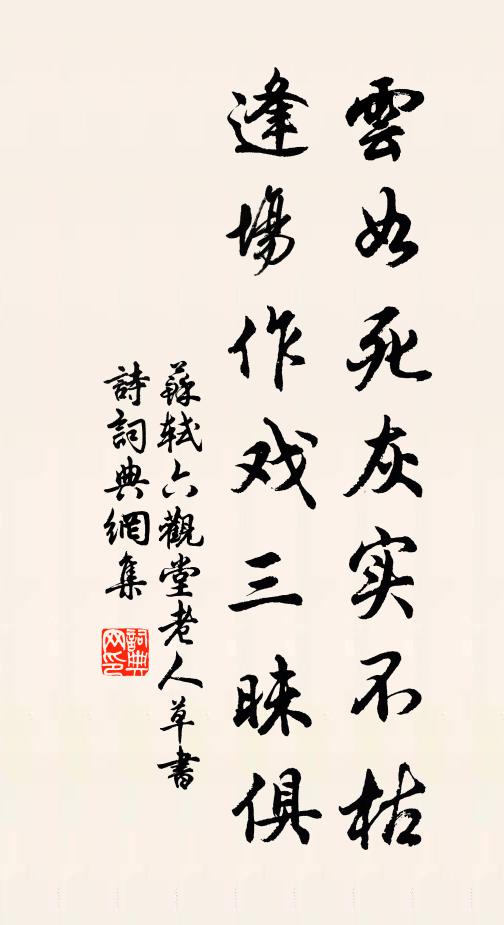 雲如死灰实不枯
逢場作戏三昧俱
蘇軾六觀堂老人草書
詩詞典網集
詞典
网印